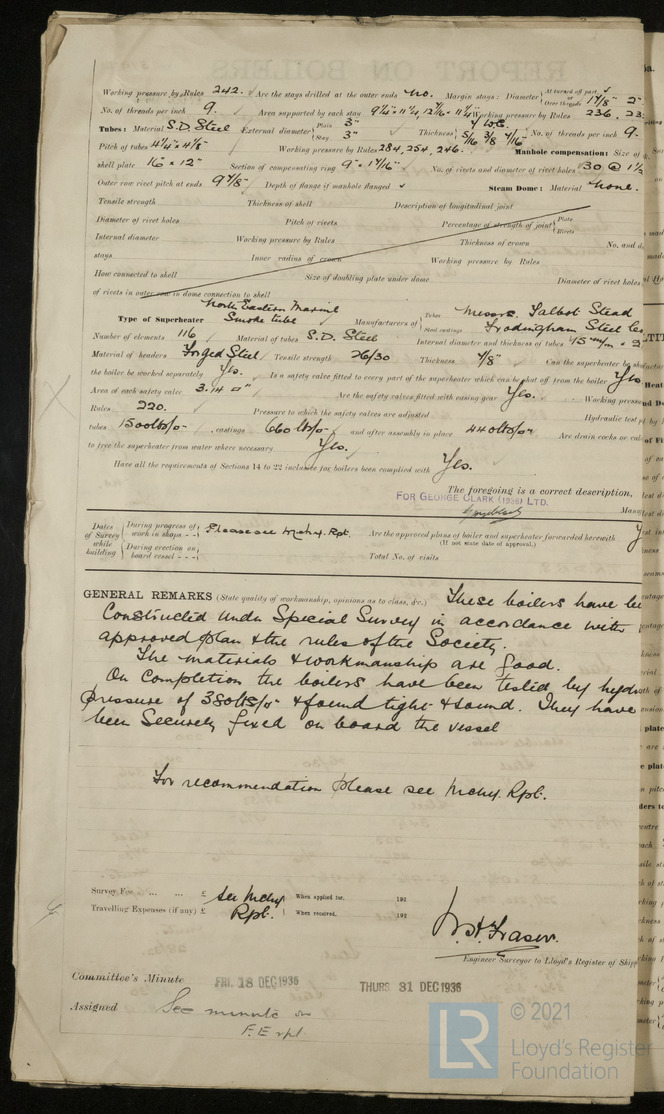 Working pressure by Rules 242. Are the stays drilled at the outer ends No. Margin stays: Diameter { At turned off part, or Over threads 1 7/8" 2"
No. of threads per inch 9. Area supported by each stay Working pressure by Rules 236, 23
Tubes: Material S.D. Steel External diameter { Plain 3" Stay 3" Thickness { 5/16 3/8 7/16" No. of threads per inch 9.
Pitch of tubes 4 1/4" x 4 1/8" Working pressure by Rules 284, 254, 246. Manhole compensation: Size of
shell plate 16" x 12" Section of compensating ring 9" x 1 7/16" No. of rivets and diameter of rivet holes 30 @ 1 1/2
Outer row rivet pitch at ends 9 7/8" Depth of flange if manhole flanged Steam Dome: Material None.
Tensile strength Thickness of shell Description of longitudinal joint
Diameter of rivet holes Pitch of rivets Percentage of strength of joint { Plate Rivets
Internal diameter Working pressure by Rules Thickness of crown No. and d
stays Inner radius of crown Working pressure by Rules
How connected to shell Size of doubling plate under dome Diameter of rivet holes
of rivets in outer row in dome connection to shell
Type of Superheater North Eastern Marine Smoke tube Manufacturers of { Tubes Messrs. Talbot Stead Steel castings Frodingham Steel Co
Number of elements 116 Material of tubes S.D. Steel Internal diameter and thickness of tubes 15 m/m x 2
Material of headers Forged Steel Tensile strength 26/30 Thickness 7/8" Can the superheater be sh
the boiler be worked separately Yes. Is a safety valve fitted to every part of the superheater which can be shut off from the boiler Yes
Area of each safety valve 3.14 □" Are the safety valves fitted with easing gear Yes. Working press
Rules 220. Pressure to which the safety valves are adjusted Hydraulic test
tubes 1500 lbs/□" , castings 660 lbs/□" and after assembly in place 440 lbs/□" Are drain cocks or val
to free the superheater from water where necessary Yes.
Have all the requirements of Sections 14 to 22 inclusive for boilers been complied with Yes.
The foregoing is a correct description,
FOR GEORGE CLARK (1936) LTD.
Manu
Dates of Survey while building { During progress of work in shops - - Please see Mchy. Rpt. Are the approved plans of boiler and superheater forwarded herewith Y
(If not state date of approval.)
During erection on board vessel - - - Total No. of visits
GENERAL REMARKS (State quality of workmanship, opinions as to class, &c.) These boilers have be
Constructed under Special Survey in accordance with
approved plan & the rules of the Society.
The materials & workmanship are good.
On Completion the boilers have been tested by hydr
pressure of 380 lbs/□" & found tight & sound. They have
been Securely fixed on board the vessel
For recommendation please see Mchy. Rpt.
Survey Fee ... ... £ See Mchy When applied for, 191
Travelling Expenses (if any) £ Rpt. When received, 192
W. H. Fraser.
Engineer Surveyor to Lloyd's Register of Shipp
Committee's Minute FRI. 18 DEC 1936 THURS. 31 DEC 1936
Assigned See minute on
F.E. rpt
© 2021
Lloyd's Register
Foundation
LR